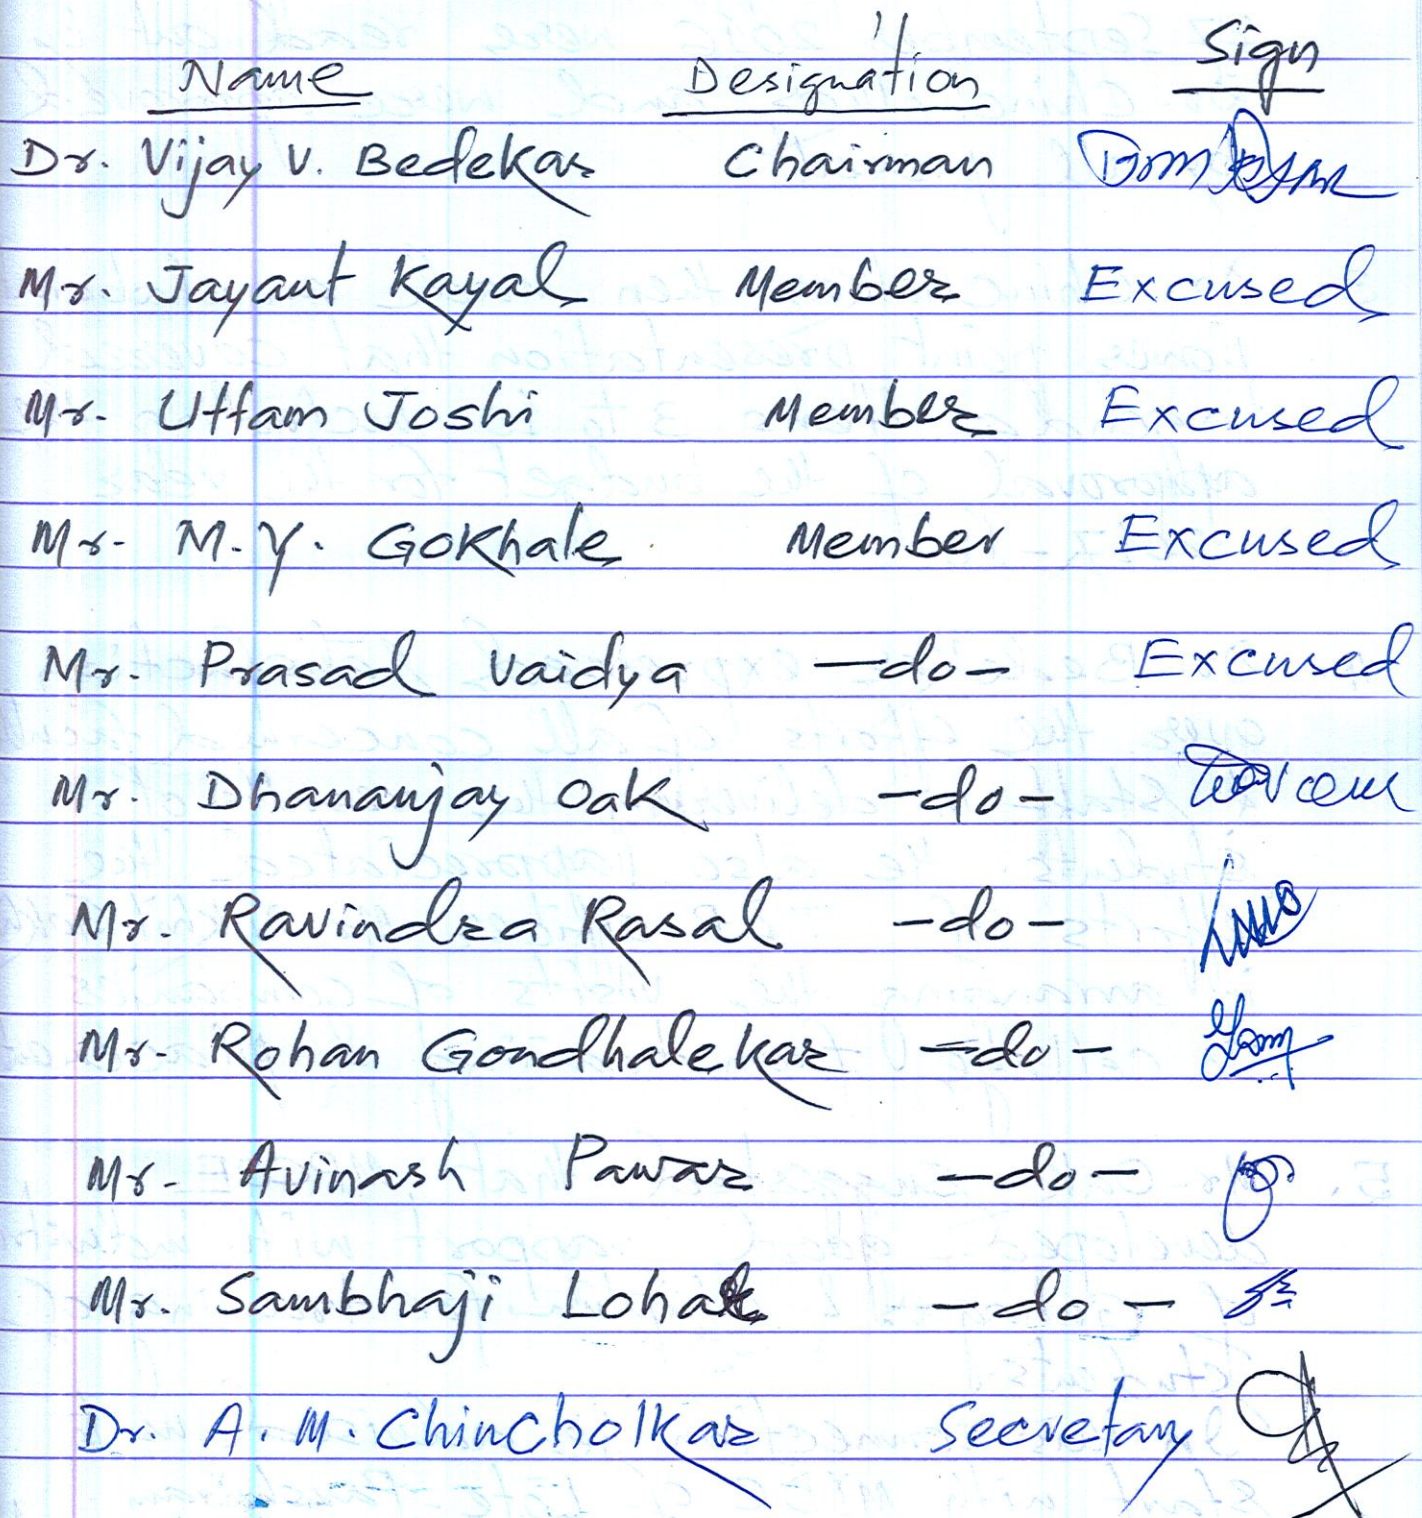 Name Designation Sign
Dr. Vijay V. Bedekar Chairman
Mr. Jayant Kayal Member Excused
Mr. Uttam Joshi Member Excused
Mr. M.Y. Gokhale Member Excused
Mr. Prasad Vaidya —do— Excused
Mr. Dhananjay Oak —do—
Mr. Ravindra Rasal —do—
Mr. Rohan Gondhalekar —do—
Mr. Avinash Pawar —do—
Mr. Sambhaji —do—
Dr. A. M. Chincholkar Secretary